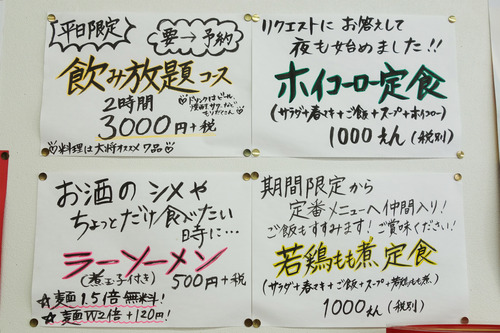 平日限定
要→予約
飲み放題コース
2時間
3000円+税
♡料理は大将オススメ7品♡
リクエストに お答えして
夜も始めました!!
ホイコーロー定食
(サラダ+春まき+ご飯+スープ+ホイコーロー)
1000えん(税別)
お酒の シメや
ちょっとだけ食べたい
時に…
ラーソーメン
(煮玉子付き) 500円+税
☆麺1.5倍無料!
☆麺W2倍+120円!
期間限定から
定番メニューへ仲間入り!
ご飯もすすみます!ご賞味ください!
若鶏もも煮定食
(サラダ+春まき+ご飯+スープ+若鶏もも煮)
1000えん(税別)